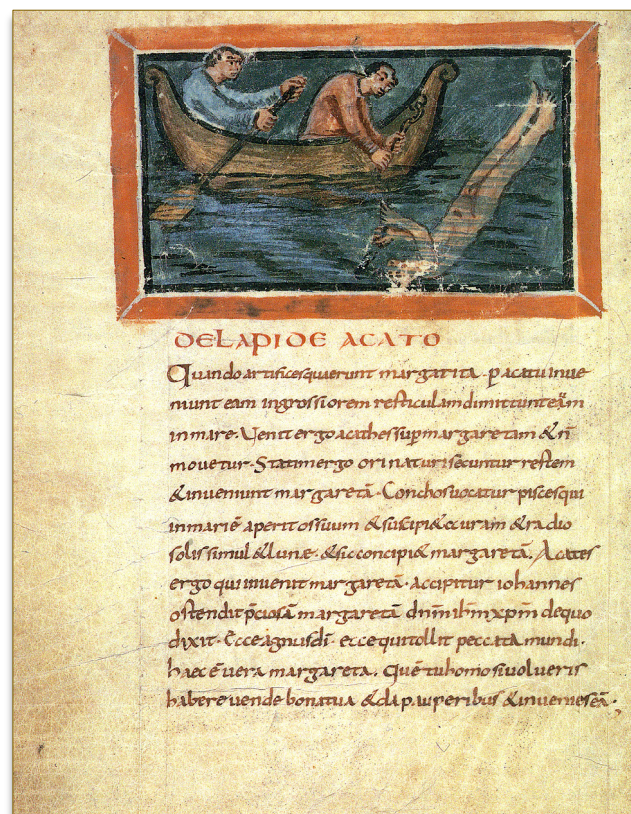 DE LAPIDE ACATO
Quando artifices querunt margarita p acatu inue
niunt eam in grossiorem resticulam dimittunt eam
in mare. Uenit ergo acathes sup margaretam & n̄
mouetur. Statim ergo orinaturi secuntur restem
& inueniunt margaretā. Conchos uocatur pisces qui
in mari ē aperit os suum & suscipi& ccuram & radio
solis simul & lune. & sic concipi& margaretā. Acates
ergo qui inuenit margaretā. accipitur iohannes
ostendit p̄ciosā margaretā dn̄m ih̄m xp̄m de quo
dixit. Ecce agnus dī. ecce qui tollit peccata mundi.
haec ē uera margareta. Quē tu homo si uolueris
habere uende bona tua & da pauperibus & inuenies eā.